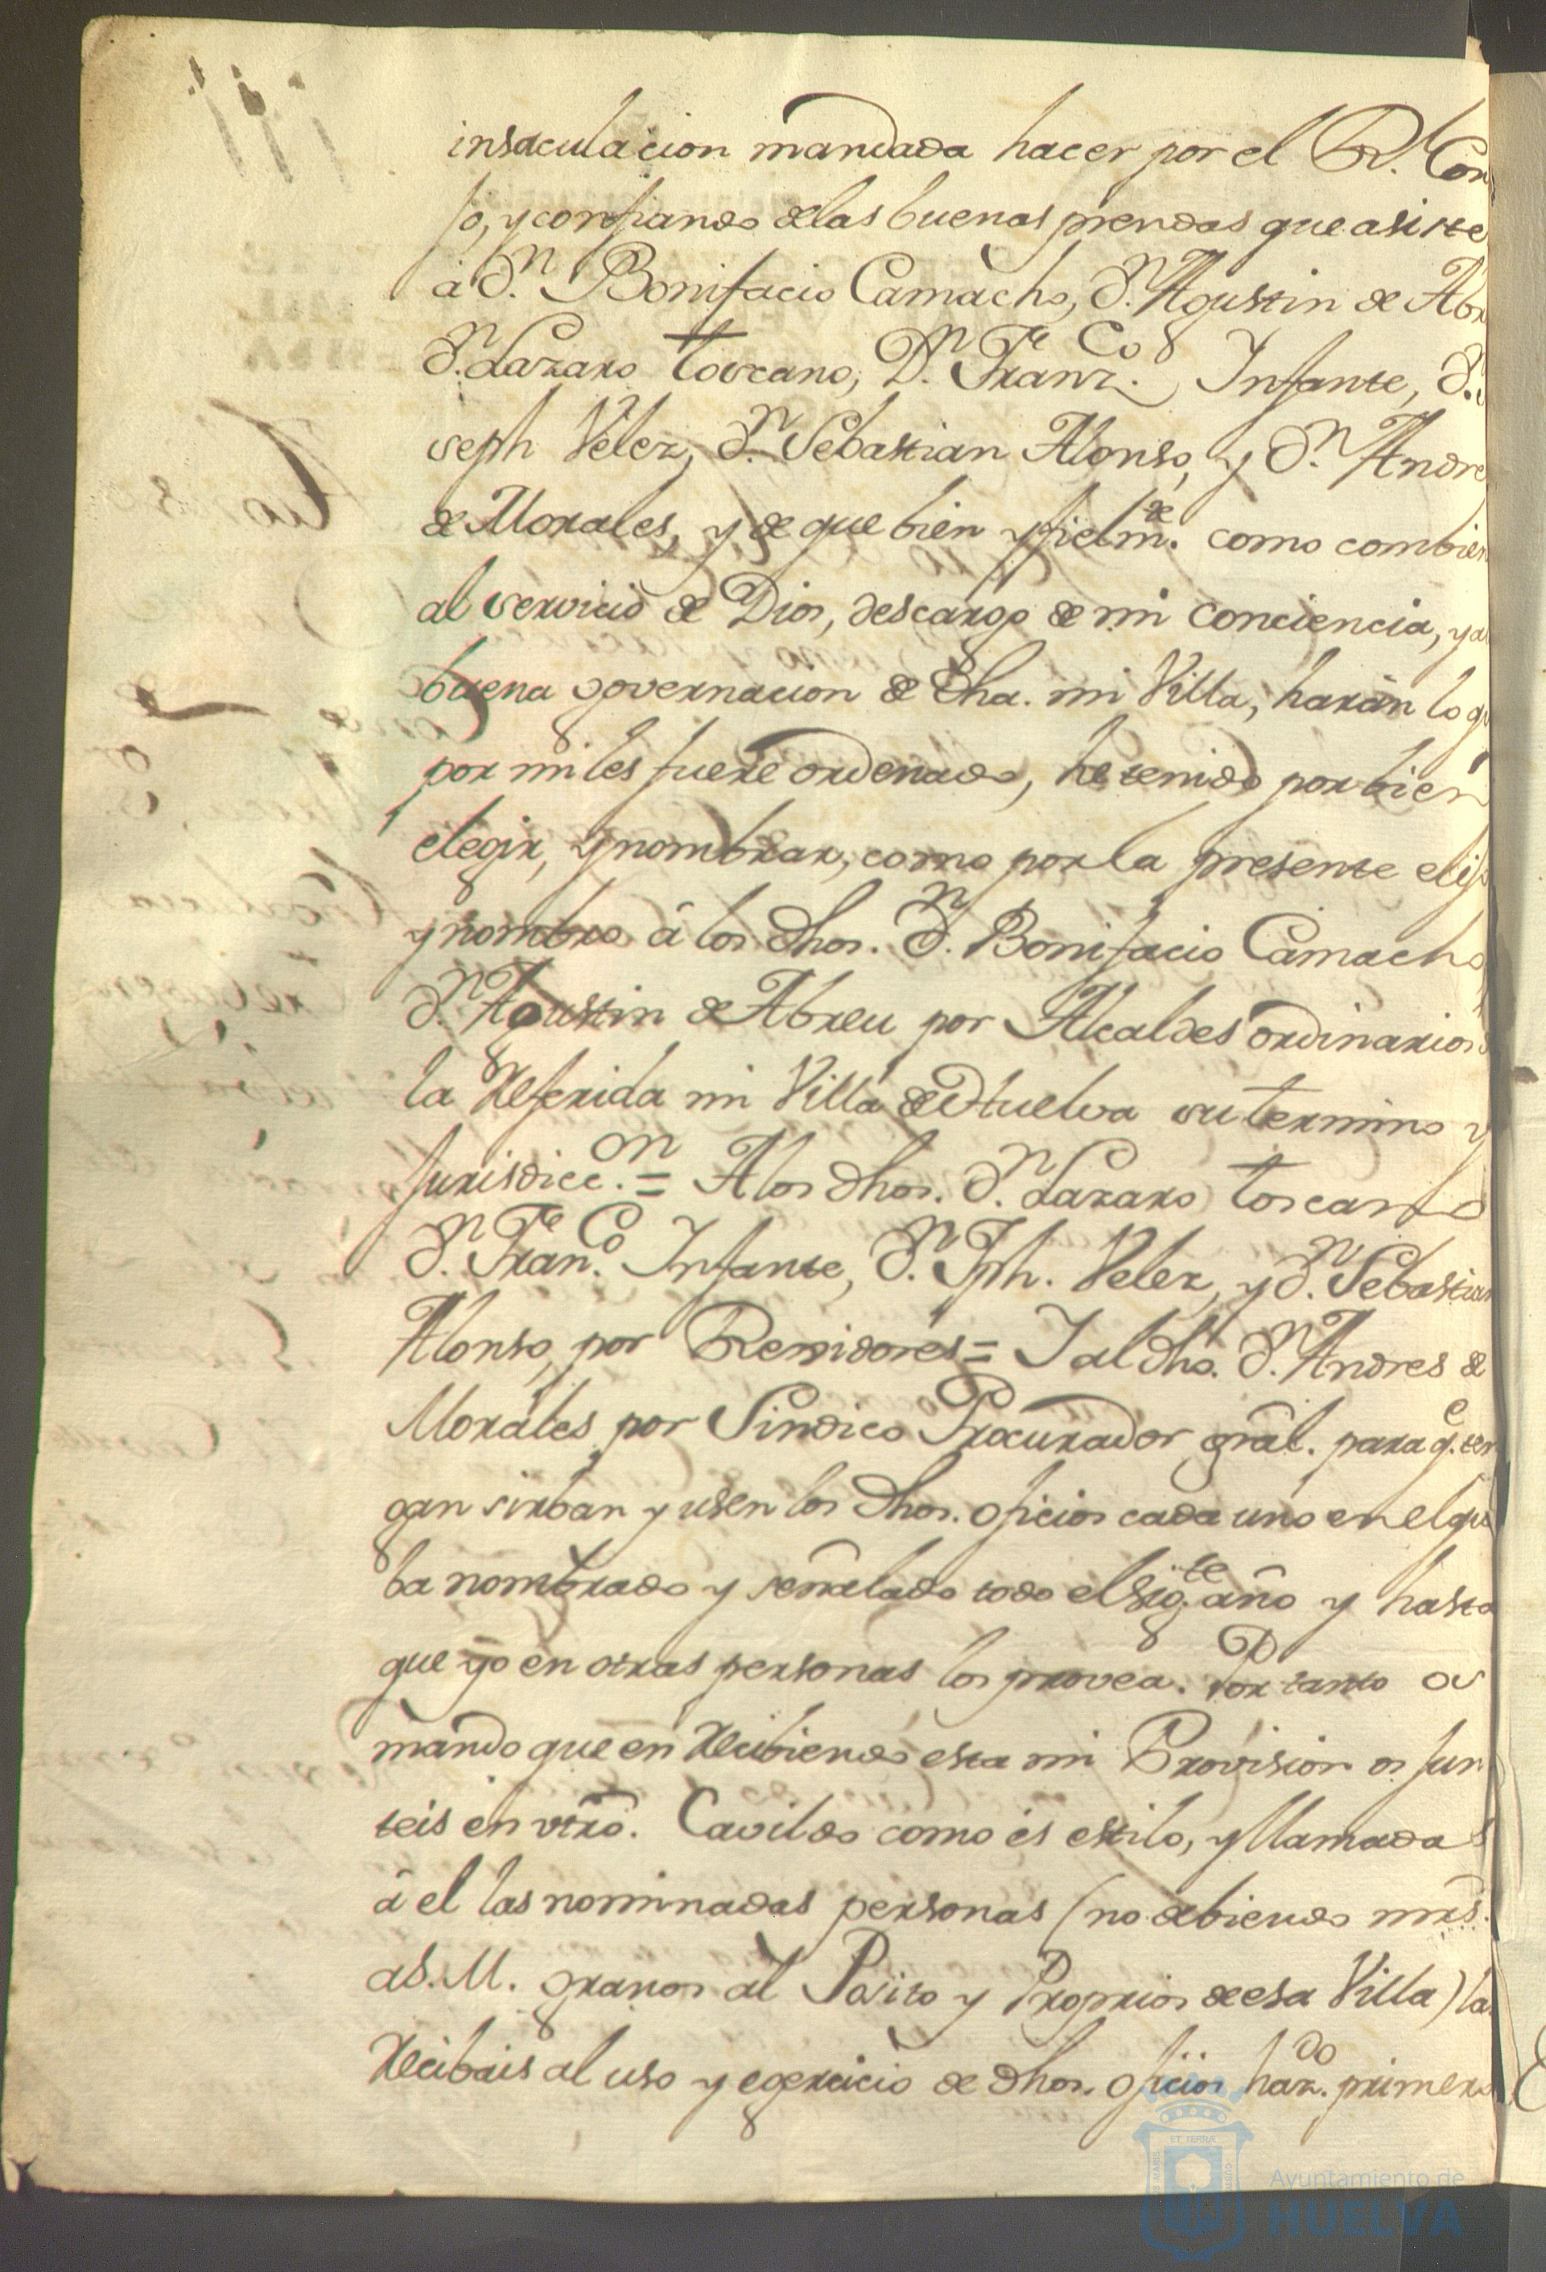 insaculacion mandada hacer por el Rl. Con
jo, y confiando de las buenas prendas que asiste
à Dn. Bonifacio Camacho, Dn. Agustin de Abr
Dn. Lazaro Toscano, Dn. Franzco. Infante, Dn.
seph Velez, Dn. Sebastian Alonso, y Dn. Andre
de Morales, y de que bien y fielmte. como combien
al servicio de Dios, descargo de mi conciencia, y a
buena governacion de dha. mi Villa, haràn lo q
por mi les fuere ordenado, he tenido por bien
elegir, y nombrar, como por la presente elijo
y nombro â los dhos. Dn. Bonifacio Camacho
Dn. Agustin de Abreu por Alcaldes ordinarios
la Referida mi Villa de Huelva su termino y
Jurisdiccon. = A los dhos. Dn. Lazaro Toscano
Dn. Franco. Infante, Dn. Jph. Velez, y Dn. Sebastian
Alonso, por Regidores = I al dho. Dn. Andres de
Morales por Sindico Procurador gral. para qe. ten
gan sirban y usen los dhos. oficios cada uno en el que
ba nombrado y señalado todo el sigte. año y hasta
que yo en otras personas los provea. Por tanto os
mando que en Recibiendo esta mi Provision os jun
teis en vtro. Cavildo como es estilo, y llamadas
â el las nominadas personas (no debiendo mrs.
a S. M. granos al Posito y Proprios de esa Villa) la
Recibais al uso y egercicio de dhos. oficios hazdo. primero
ET TERRÆ
Ayuntamiento de
HUELVA